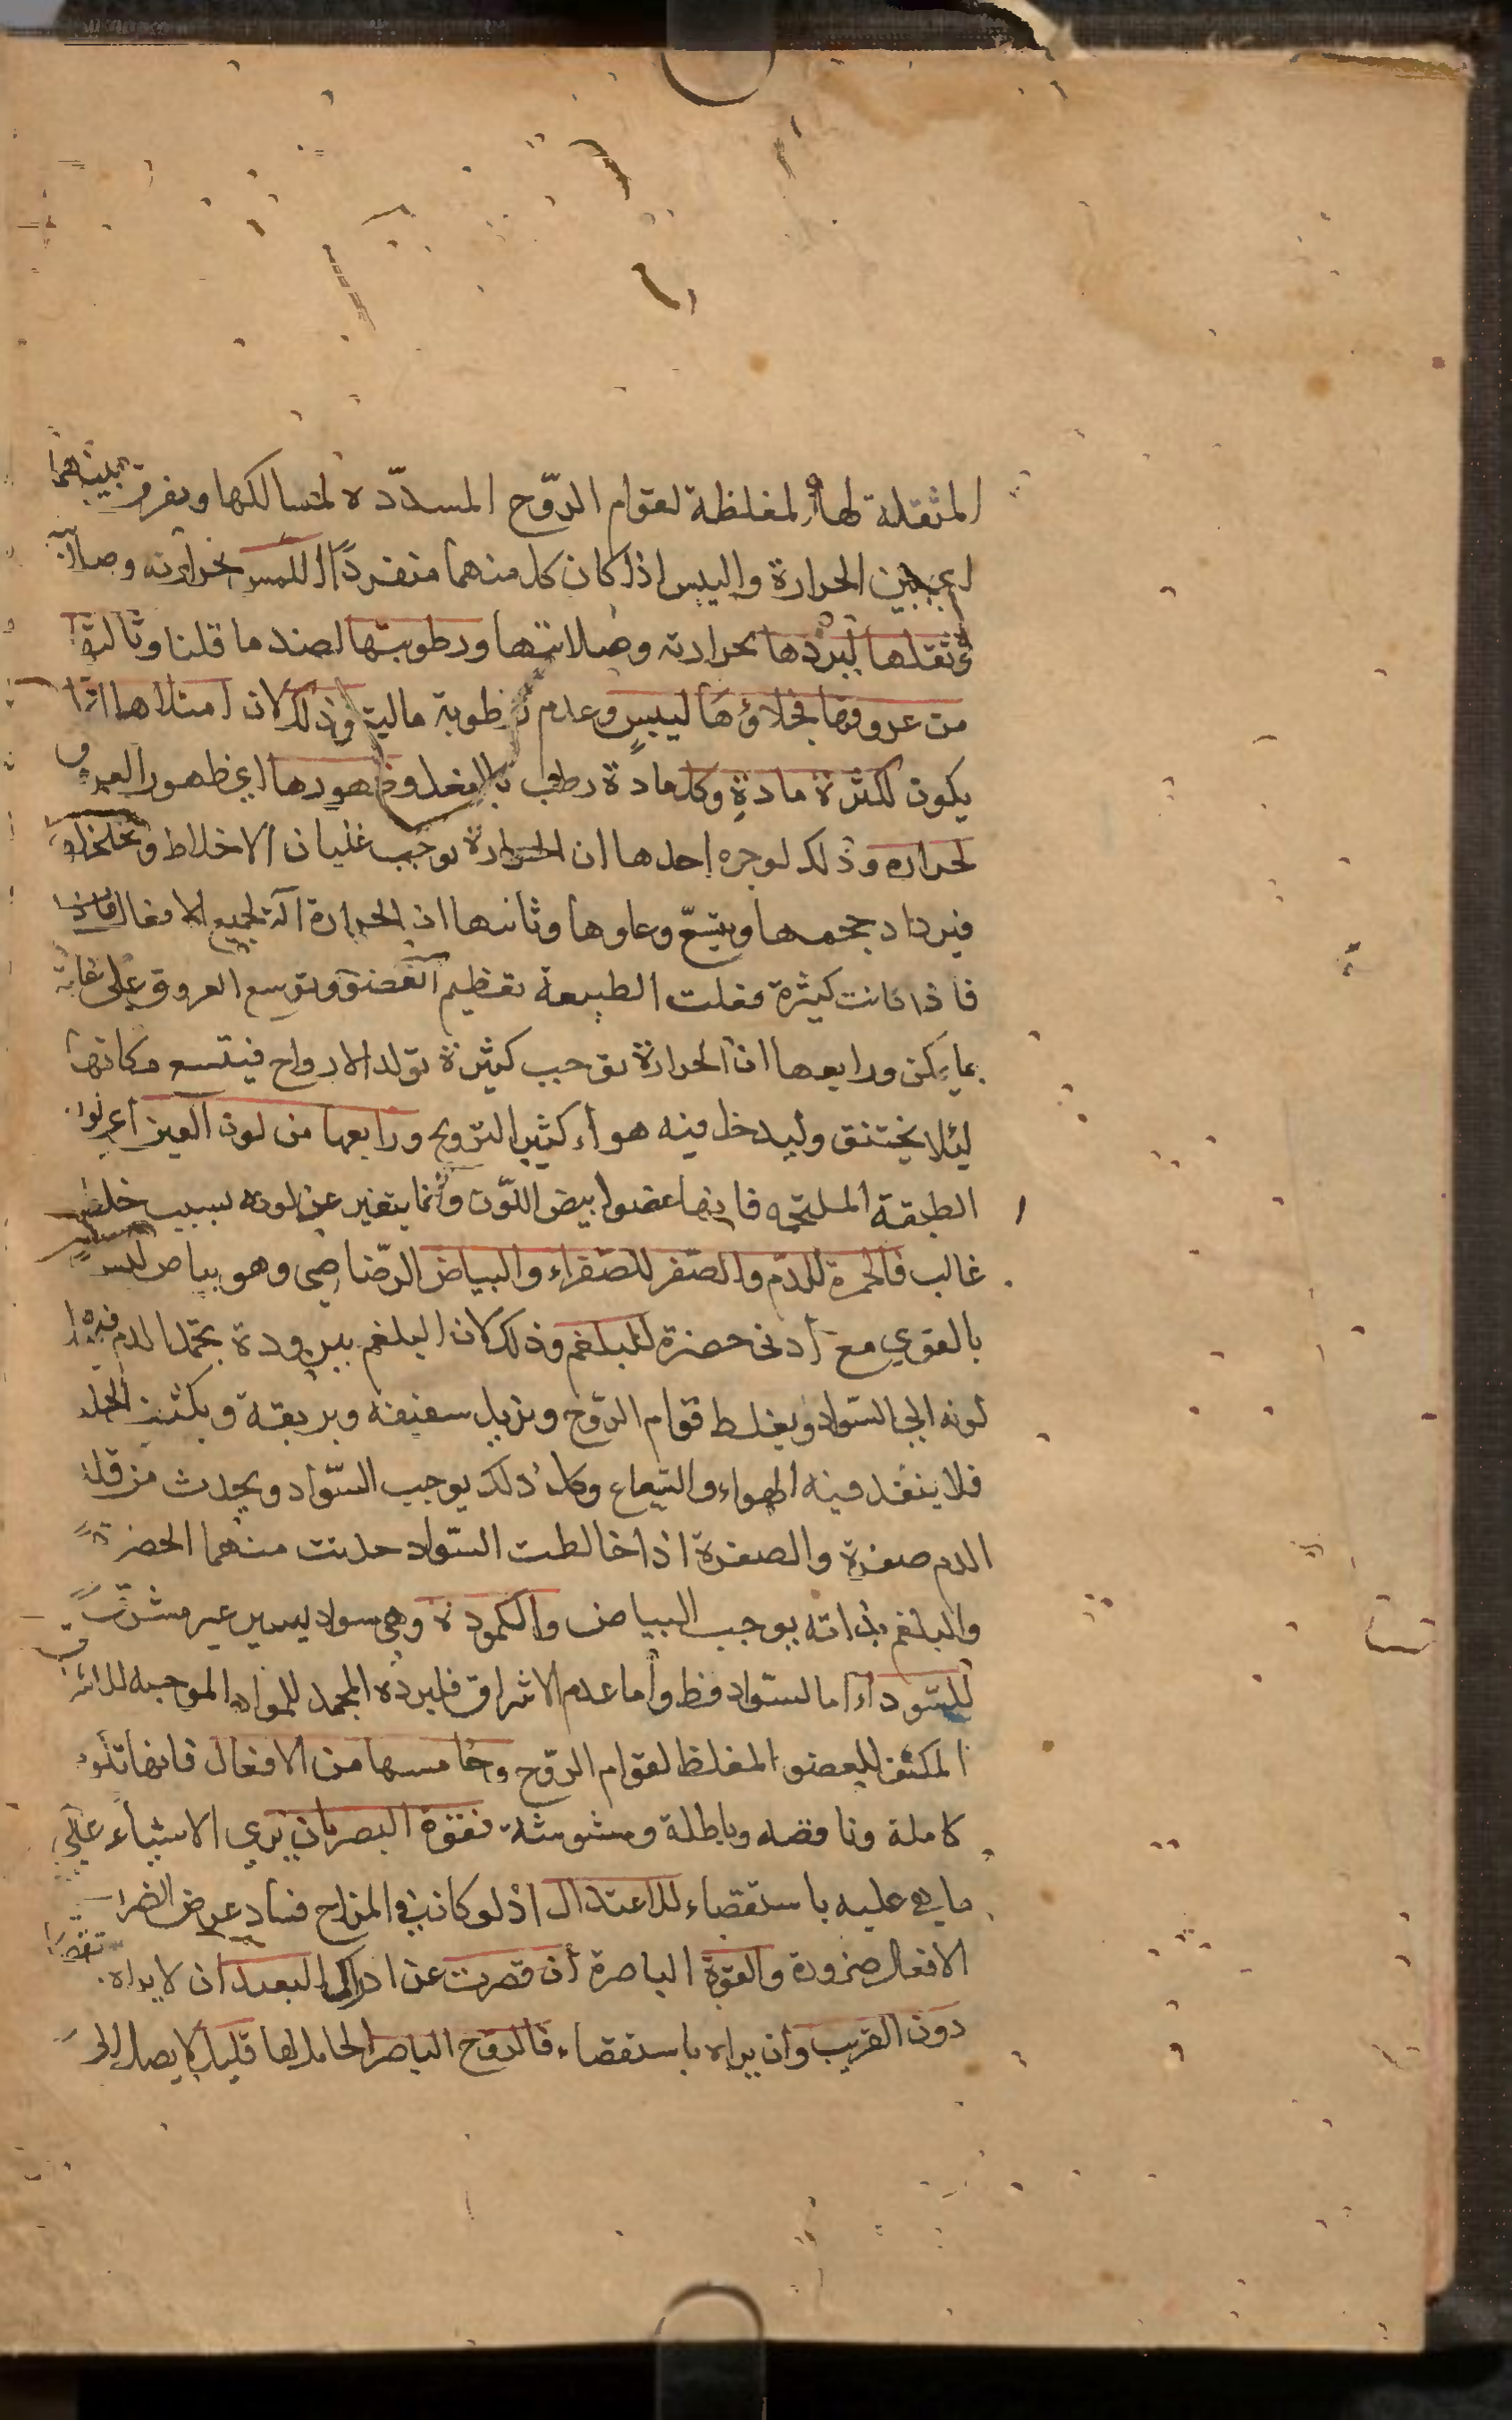 المثقلة لها المغلظة لقوام الروح المسدّده لمسالكها ويفرق بينهما
اي بين الحرارة واليبس اذا كان كل منهما منفردًا اللمس بحرارته وصلا
ثقلها لبردها بحرارته وصلابتها ورطوبتها لضد ما قلنا وثالثها
من عروقها فخلاؤها ليبسٍ وعدم رطوبة مالية وذلك لان امتلاها انما
يكون لكثرة مادةٍ وكل مادة رطب بالفعل وظهورها اي ظهور العروق
لحرارة وذلك لوجوه احدها ان الحرارة توجب غليان الاخلاط وتخلخلها
فيزداد حجمها ويتسع وعاوها وثانيها ان الحرارة آلة لجميع الافعال
فاذا كانت كثيرة فعلت الطبيعة تعظيم العضو وتوسع العروق على غاية
ما يمكن ورابعها ان الحرارة توجب كثيرة تولد الارواح فيتسع مكانها
ليلا يختنق وليدخل فيه هواء كثير الترويح ورابعها من لون العين اعني لون
الطبقة الملتحمه فانها عضوا بيض اللّون وانما يتغير عن لونه بسبب خلط
غالب فالحمرة للدم والصفر للصفراء والبياض الرّصاصي وهو بياض ليس
بالقوي مع أدنى خضرة للبلغم وذلك لان البلغم ببرودة يجمد الدم فيه
لونه الى السّواد ويغلط قوام الرّوح ويزيل سفيفه وبريقه ويكثف الجلد
فلا ينفد فيه الهواء والشعاع وكل ذلك يوجب السّواد ويحدث من قلة
الدم صفرة والصفرة اذا خالطت السّواد حدثت منهما الخضرة
والبلغم بذاته يوجب البياض والكمودة وهي سواد يسير غير مشرق
للسّوداء اما السّواد فظ واما عدم الاشراق فلبرده المجمد للمواد الموجبه
المكثف للعضو المغلظ لقوام الرّوح وخامسها من الافعال فانها تكو
كاملة وناقصه وباطلة ومشوشة فقوة البصر بان يرى الاشياء على
ما هي عليه باستقصاء للاعتدال اذ لو كان في المزاج فساد عرض الضرر
الافعال ضرورة والقوة الباصرة ان قصرت عن ادراك البعيد ان لا يراه
دون القريب وان يراه باستقصاء فالروح الباصر الحامل لها قليل لا يصل الى